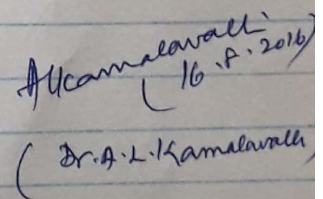 ALKamalavalli
(16.8.2016)
(Dr.A.L.Kamalavalli)